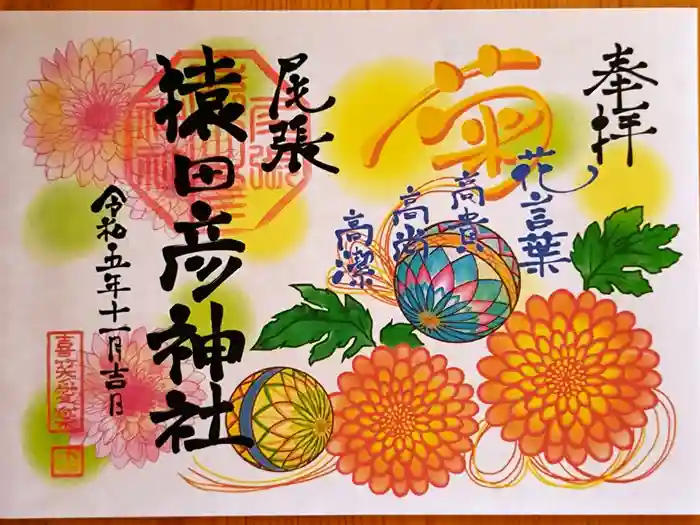 奉拝
菊
花言葉
高貴
高尚
高潔
尾張
猿田彦神社
令和五年十一月吉日